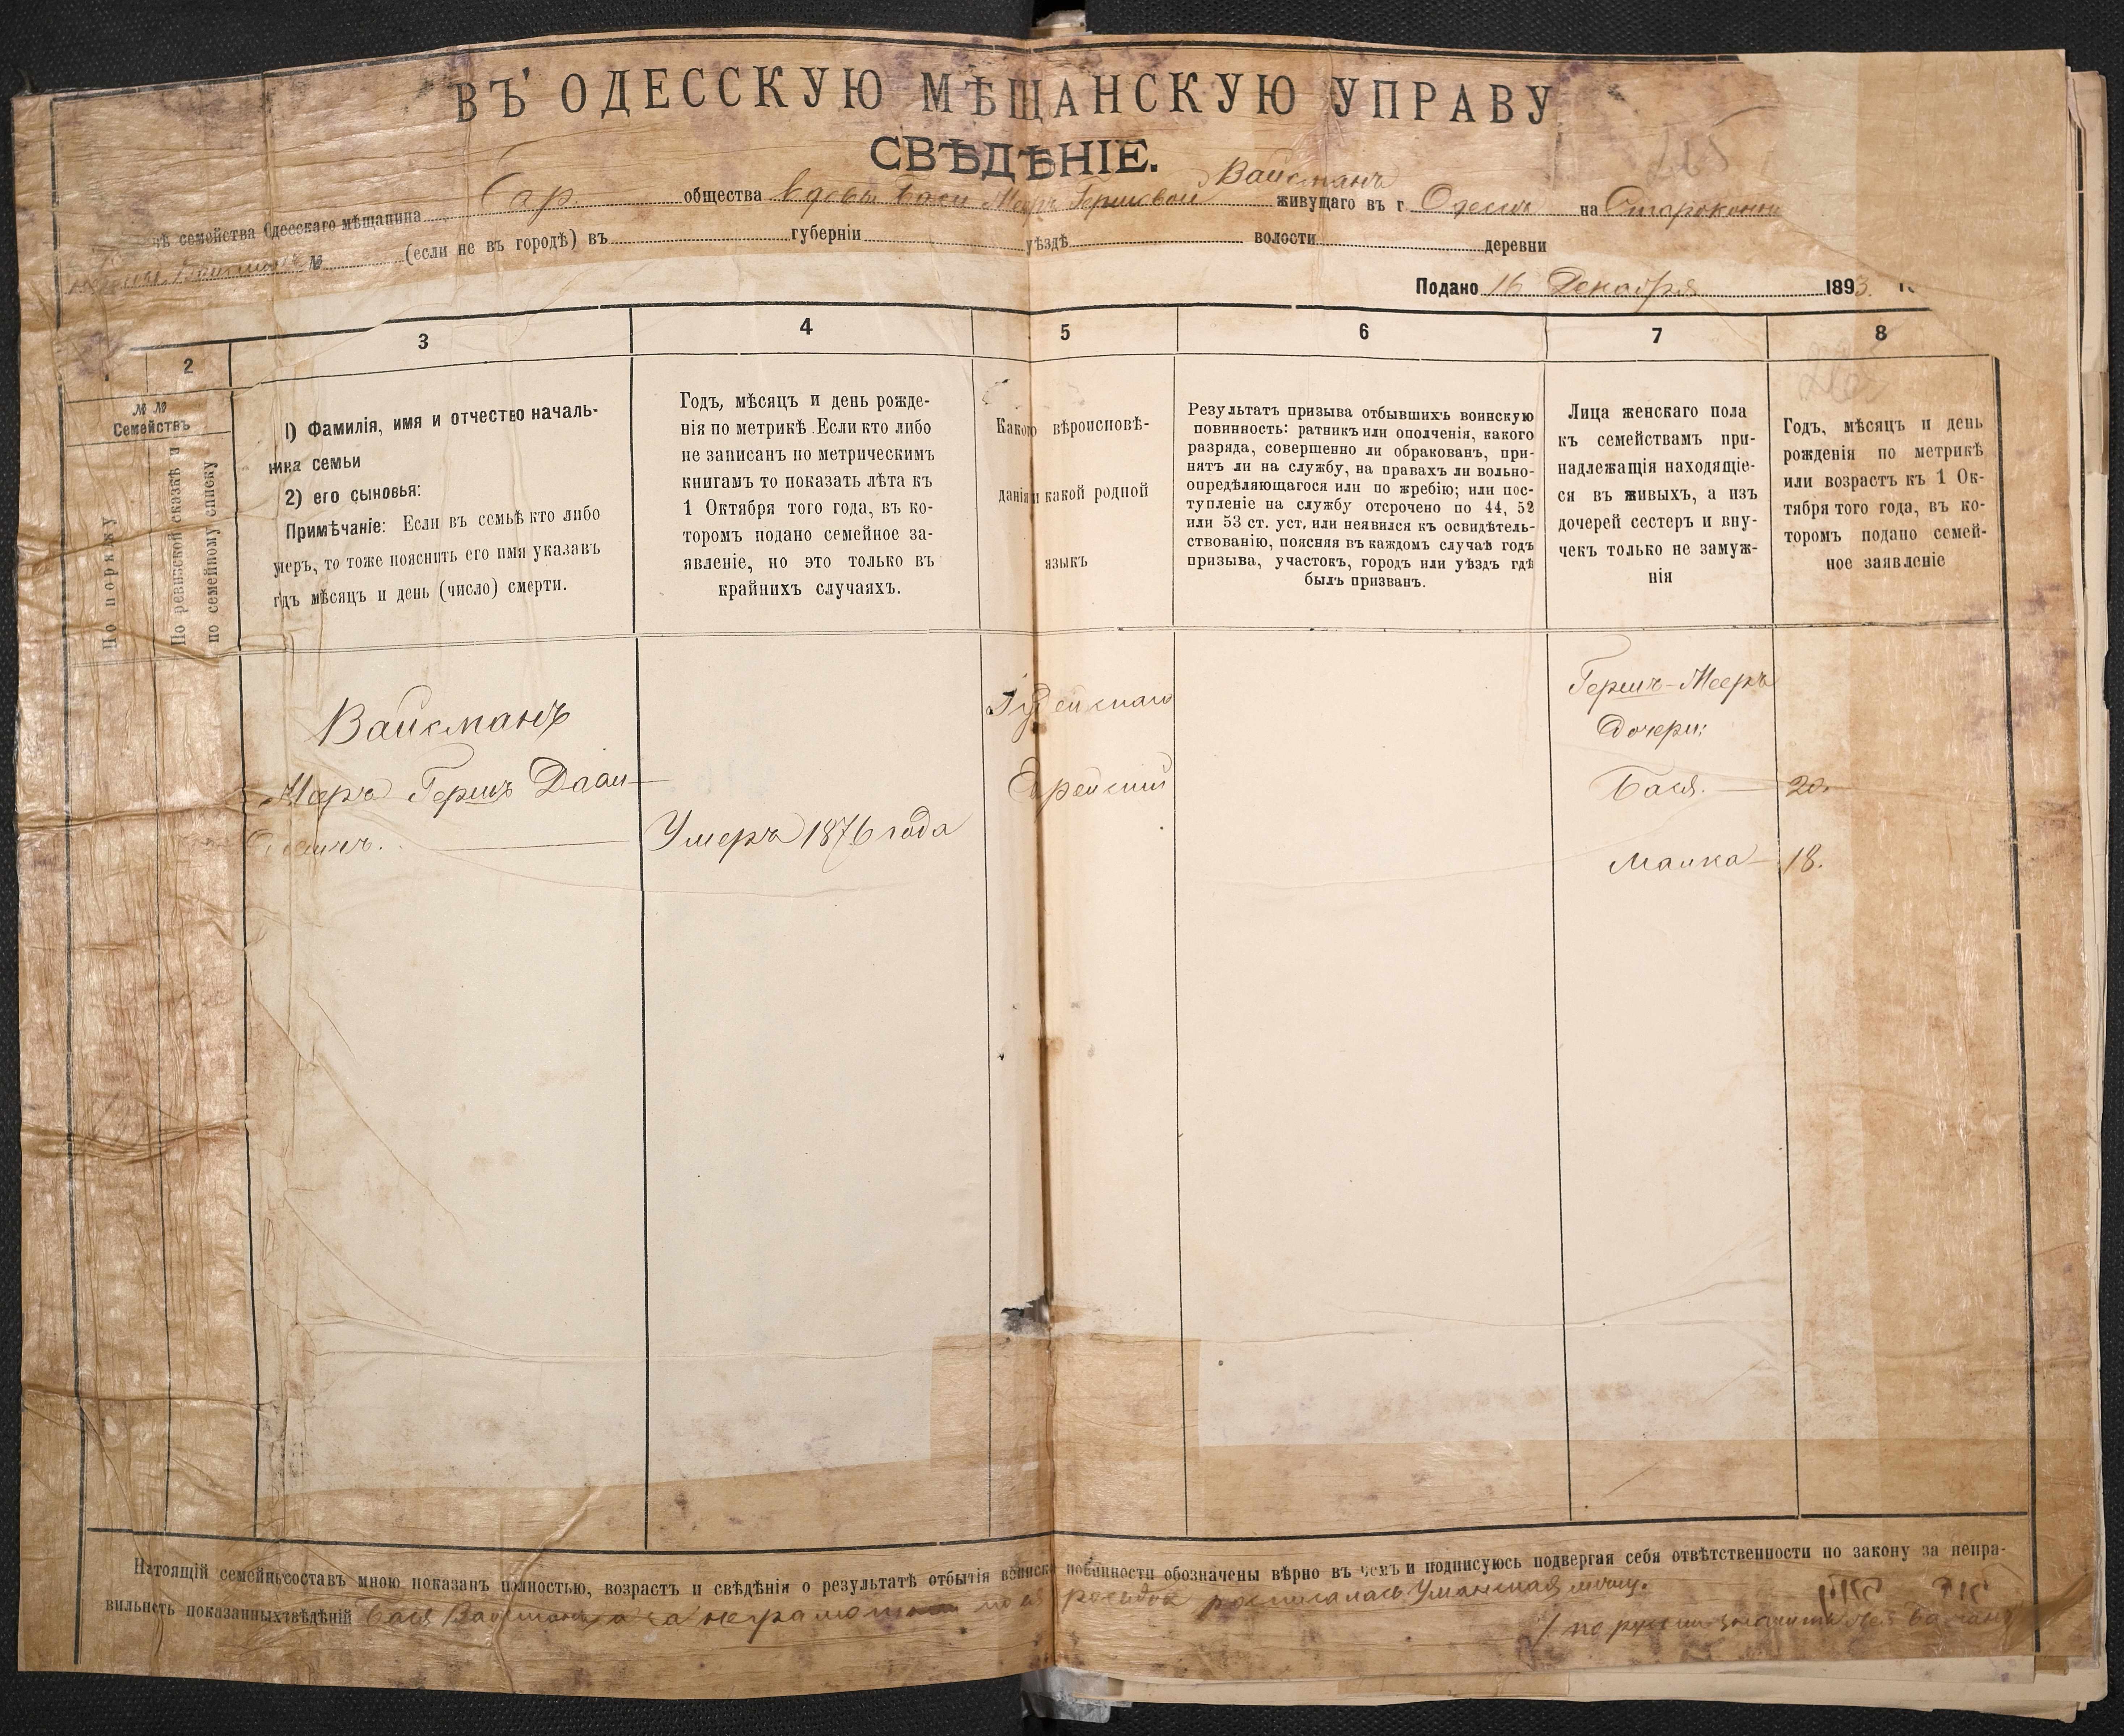 ВЪ ОДЕССКУЮ МѢЩАНСКУЮ УПРАВУ
СВѢДѢНІЕ.
265
Вайсманъ
семейства Одесскаго мѣщанина общества вдовы Баси Меръ Гершковой живущаго въ г. Одессѣ на Староконно
№ (если не въ городѣ) въ губерніи уѣздѣ волости деревни
Подано 16 Декабря 1893
2 3 4 5 6 7 8
№ №
Семействъ
По порядку
По ревизской сказкѣ и
по семейному списку
1) Фамилія, имя и отчество началь-
ника семьи
2) его сыновья:
Примѣчаніе: Если въ семьѣ кто либо
умеръ, то тоже пояснить его имя указавъ
годъ мѣсяцъ и день (число) смерти.
Годъ, мѣсяцъ и день рожде-
нія по метрикѣ. Если кто либо
не записанъ по метрическимъ
книгамъ то показать лѣта къ
1 Октября того года, въ ко-
торомъ подано семейное за-
явленіе, но это только въ
крайнихъ случаяхъ.
Какого вѣроисповѣ-
данія и какой родной
языкъ
Результатъ призыва отбывшихъ воинскую
повинность: ратникъ или ополченія, какого
разряда, совершенно ли обракованъ, при-
нятъ ли на службу, на правахъ ли вольно-
опредѣляющагося или по жребію; или пос-
тупленіе на службу отсрочено по 44, 52
или 53 ст. уст, или неявился къ освидѣтель-
ствованію, поясняя въ каждомъ случаѣ годъ
призыва, участокъ, городъ или уѣздъ гдѣ
былъ призванъ.
Лица женскаго пола
къ семействамъ при-
надлежащія находящіе-
ся въ живыхъ, а изъ
дочерей сестеръ и вну-
чекъ только не замуж-
нія
Годъ, мѣсяцъ и день
рожденія по метрикѣ
или возрастъ къ 1 Ок-
тября того года, въ ко-
торомъ подано семей-
ное заявленіе
Вайсманъ
Меръ Гершъ
Умеръ 1876 года
Іудейскаго
Еврейскій
Гершъ-Мееръ
Дочери:
Бася. — 20.
Малка — 18.
Настоящій семейный составъ мною показанъ полностью, возрастъ и свѣдѣнія о результатѣ отбытія воинской повинности обозначены вѣрно въ чемъ и подписуюсь подвергая себя отвѣтственности по закону за непра-
вильность показанныхъ свѣдѣній Бася Вайсманъ, а за неграмотн росписалась Уманская мѣщ.
по русски значитъ